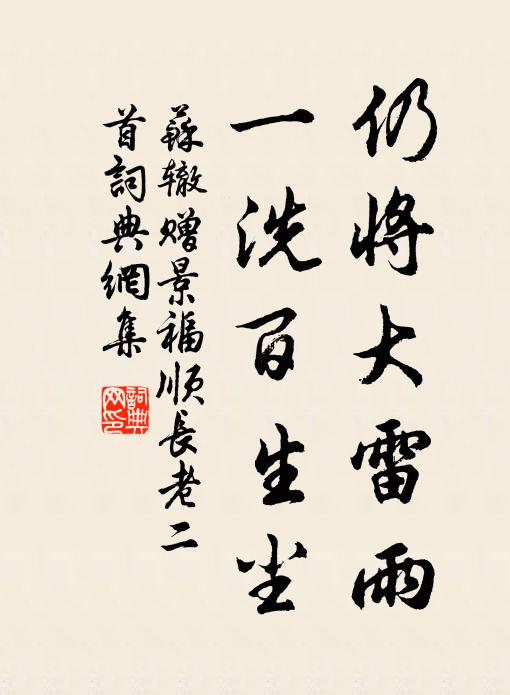 仍将大雷雨
一洗百生尘
蘇辙赠景福顺長老二
首詞典網集
詞典
网印